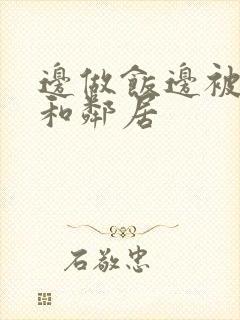 邊做飯邊被
和鄰居
石敬忠